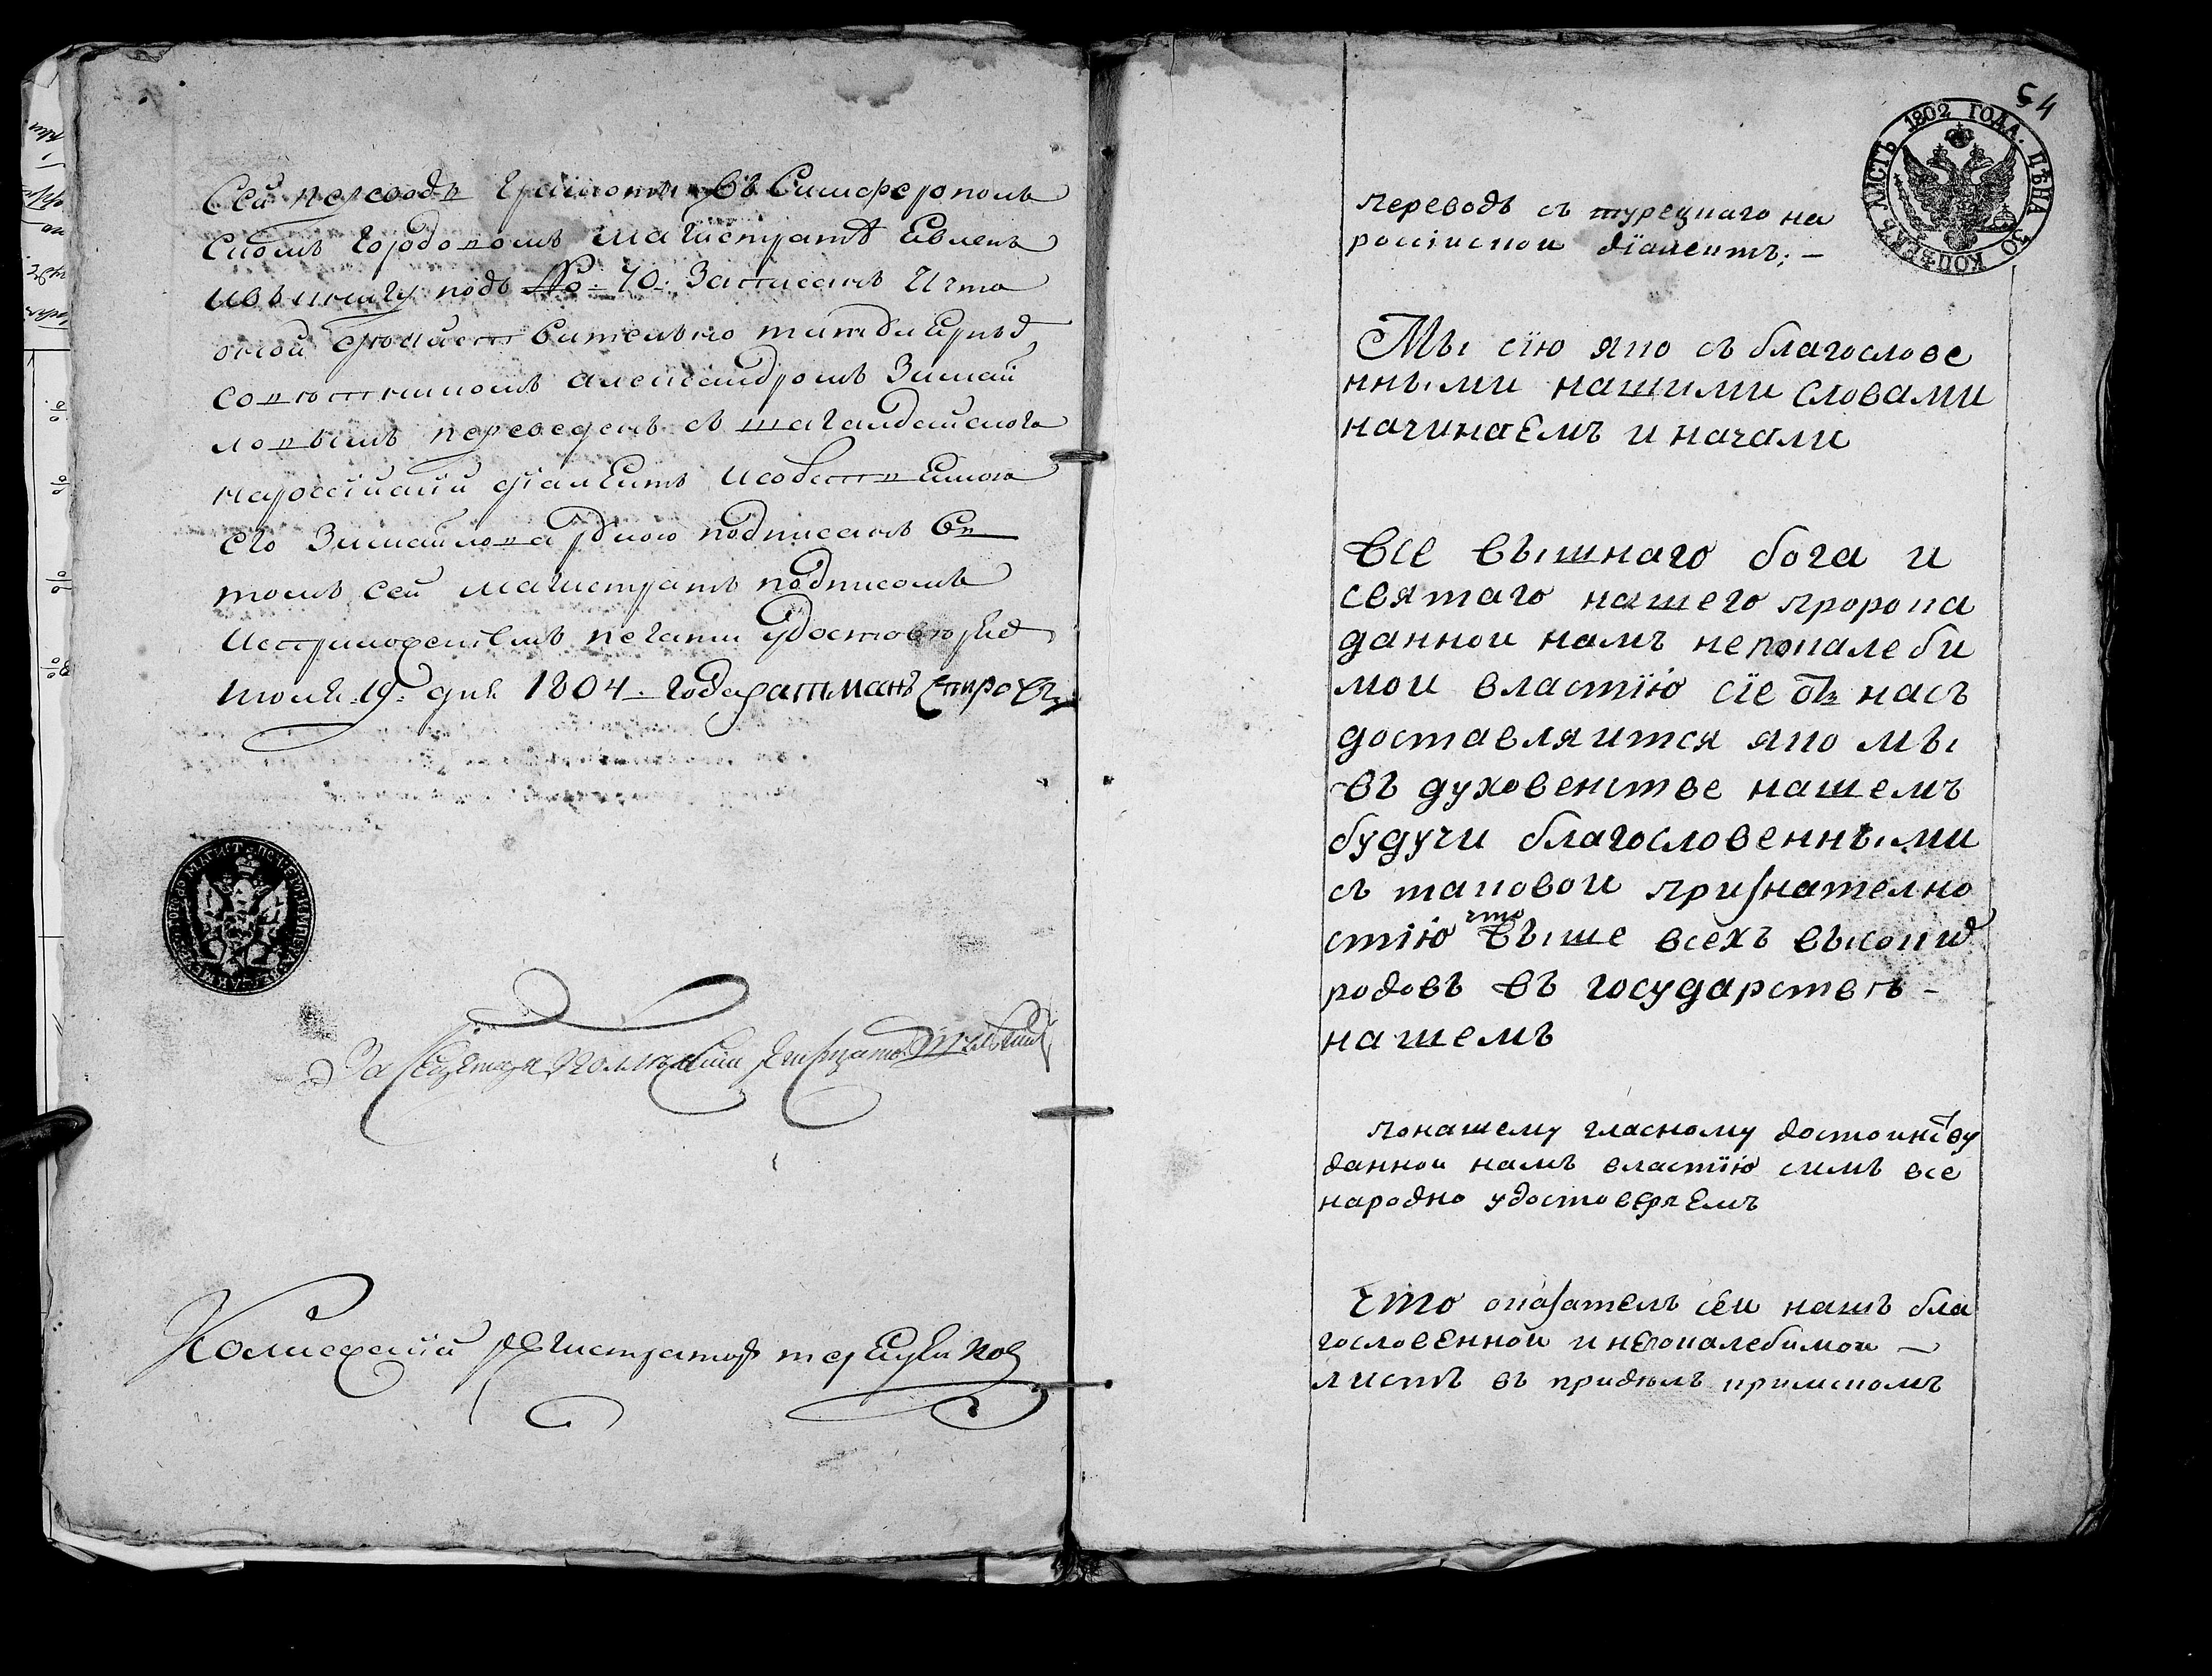 Сей переводъ грамоты въ Симферополь
скомъ городовомъ магистратѣ Евленъ
и въ книгу подъ №: 70. Записанъ И что
оной
александромъ Измай
ловымъ переведенъ съ
на россiйскiй дiалектъ и собственною
его Измайлова рукою подписанъ въ
томъ сей магистратъ подписомъ
и съ приложенiемъ печати удостоверяе
июля 19. дня 1804 года ратманъ
Колисекiй регистраторъ
54
1802 ГОДА. ЦѢНА 30 КОПѢЕКЪ ЛИСТЪ
переводъ съ турецкаго на
россiискои дïалектъ: —
Мы сïю яко съ благослове
нными нашими словами
начинаемъ и начали
Все вышнаго бога и
святаго нашего пророка
даннои намъ непоколеби
мои властïю сïе отъ насъ
доставляится яко мы
въ духовенстве нашемъ
будучи благословенными
съ таковои признателно
стïю что выше всехъ высоки
родовъ въ государствѣ –
нашемъ
по нашему гласному достоинству
даннои намъ властïю симъ все
народно удостоверяемъ
что оказатель сеи нашъ бла
гословеннои и непоколебимои —
листъ въ придѣлъ крымскомъ